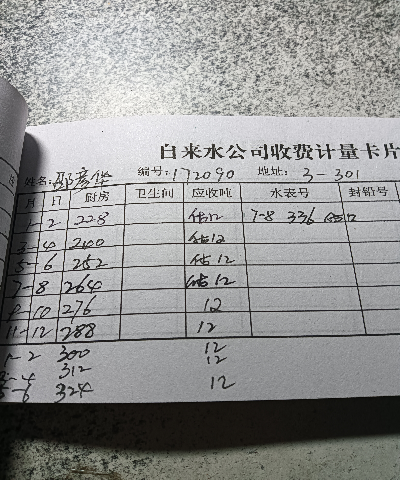 自来水公司收费计量卡片
姓名: 邵彦华 编号: 172090 地址: 3-301
月 日 厨房 卫生间 应收吨 水表号 封铅号
1-2 228 估12 7-8 336
3-4 240 估12
5-6 252 估12
7-8 264 估12
9-10 276 12
11-12 288 12
1-2 300 12
3-4 312 12
5-6 324 12